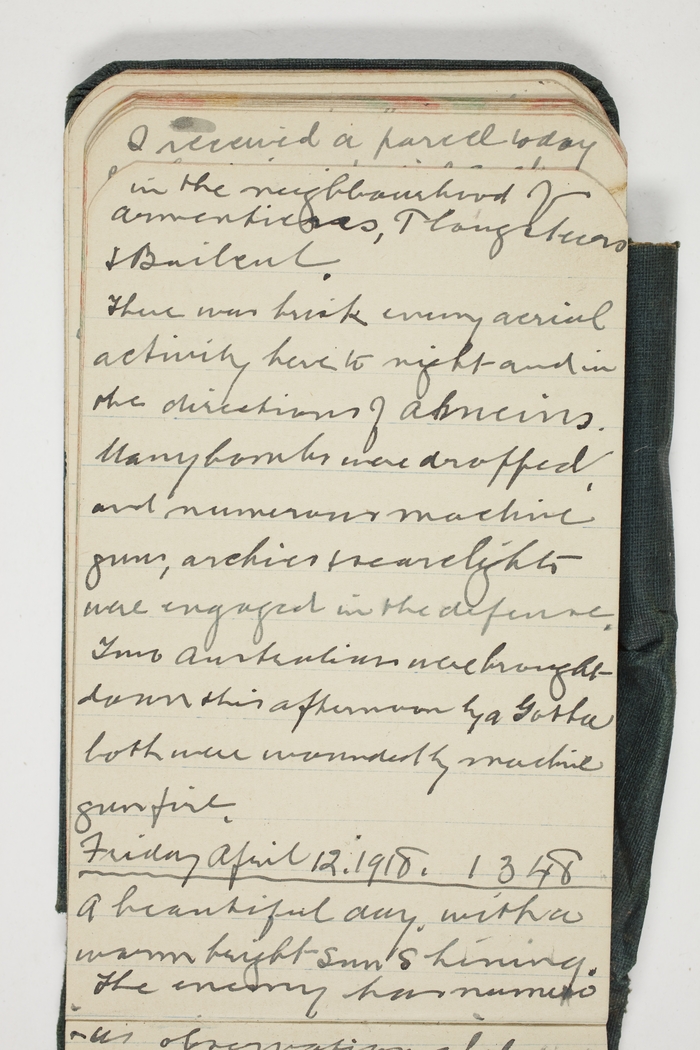 I received a parcel today
in the neighbourhood of
Armentieres, Ploegsteers
& Baileul.
There was brisk enemy aerial
activity here to night and in
the directions of Amneins.
Many bombs were dropped,
and numerous machine
guns, archies & searclights
were engaged in the defense.
Two Australians were brought
down this afternoon by a Gotha
both were wounded by machine
gun fire.
Friday April 12. 1918. 1348
A beautiful day, with a
warm bright sun shining.
The enemy has numero
us observation